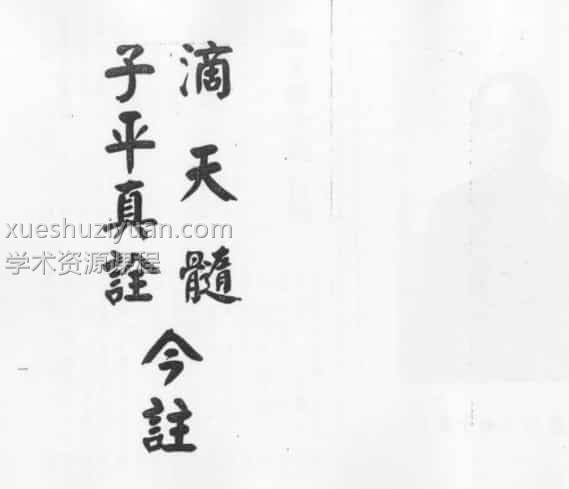 滴天髓
子平真詮
今註
xueshuziyuan.com
学术资源课程